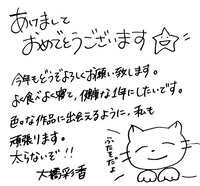 あけまして
おめでとうございます
今年もどうぞよろしくお願い致します。
よく食べよく寝て、健康な1年にしたいです。
色々な作品に出会えるように、私も
頑張ります。
太らないぞ!!
大橋彩香
ふたもだよ